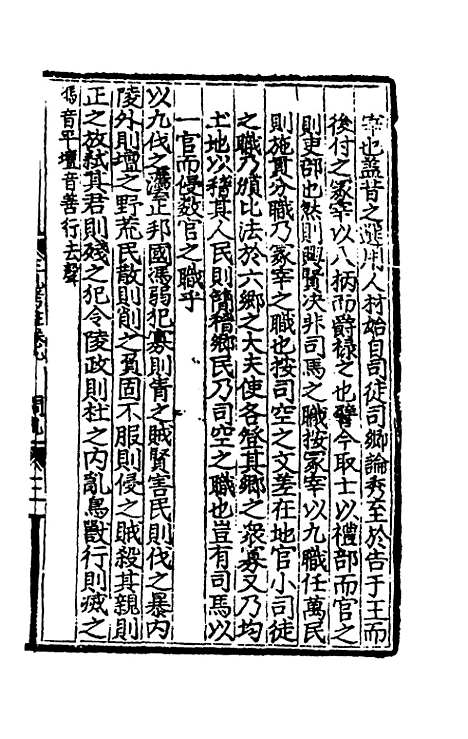 宰也蓋昔之選用人材始自司徒司鄉論秀至於告于王而
後付之冢宰以八柄而爵祿之也譬今取士以禮部而官之
則吏部也然則興賢決非司馬之職按冢宰以九職任萬民
則施貢分職乃冢宰之職也按司空之文差在地官小司徒
之職乃頒比法於六鄉之大夫使各登其鄉之衆寡又乃均
土地以稽其人民則簡稽鄉民乃司空之職也豈有司馬以
一官而侵數官之職乎
以九伐之灋正邦國馮弱犯寡則眚之賊賢害民則伐之暴內
陵外則壇之野荒民散則削之負固不服則侵之賊殺其親則
正之放弒其君則殘之犯令陵政則杜之內亂鳥獸行則滅之
馮音平壇音善行去聲